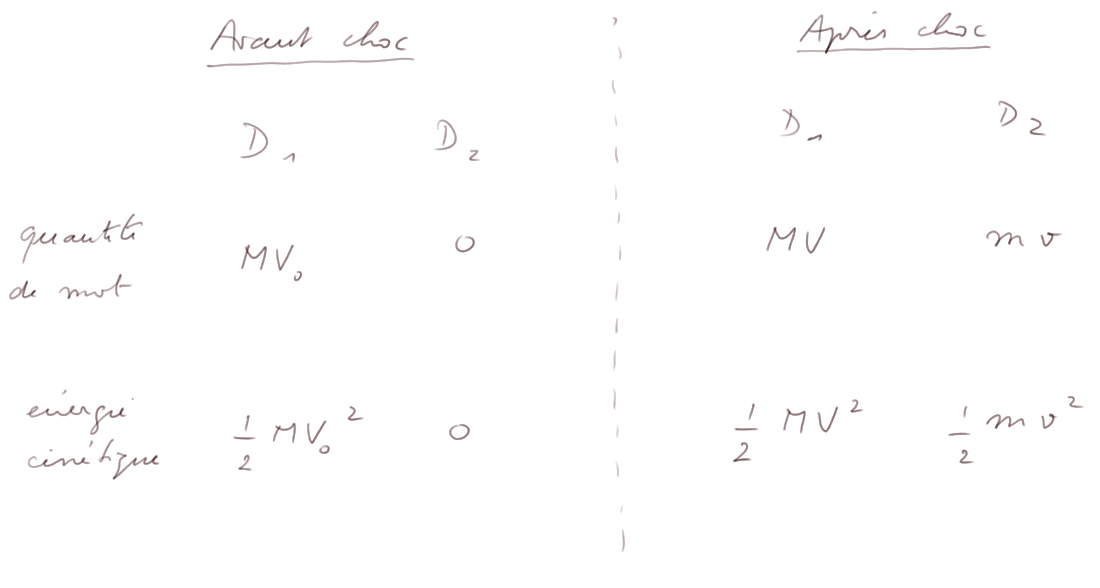 Avant choc Après choc
D₁ D₂ D₁ D₂
quantité
de mvt MV₀ 0 MV mv
énergie
cinétique ½ MV₀² 0 ½ MV² ½ mv²